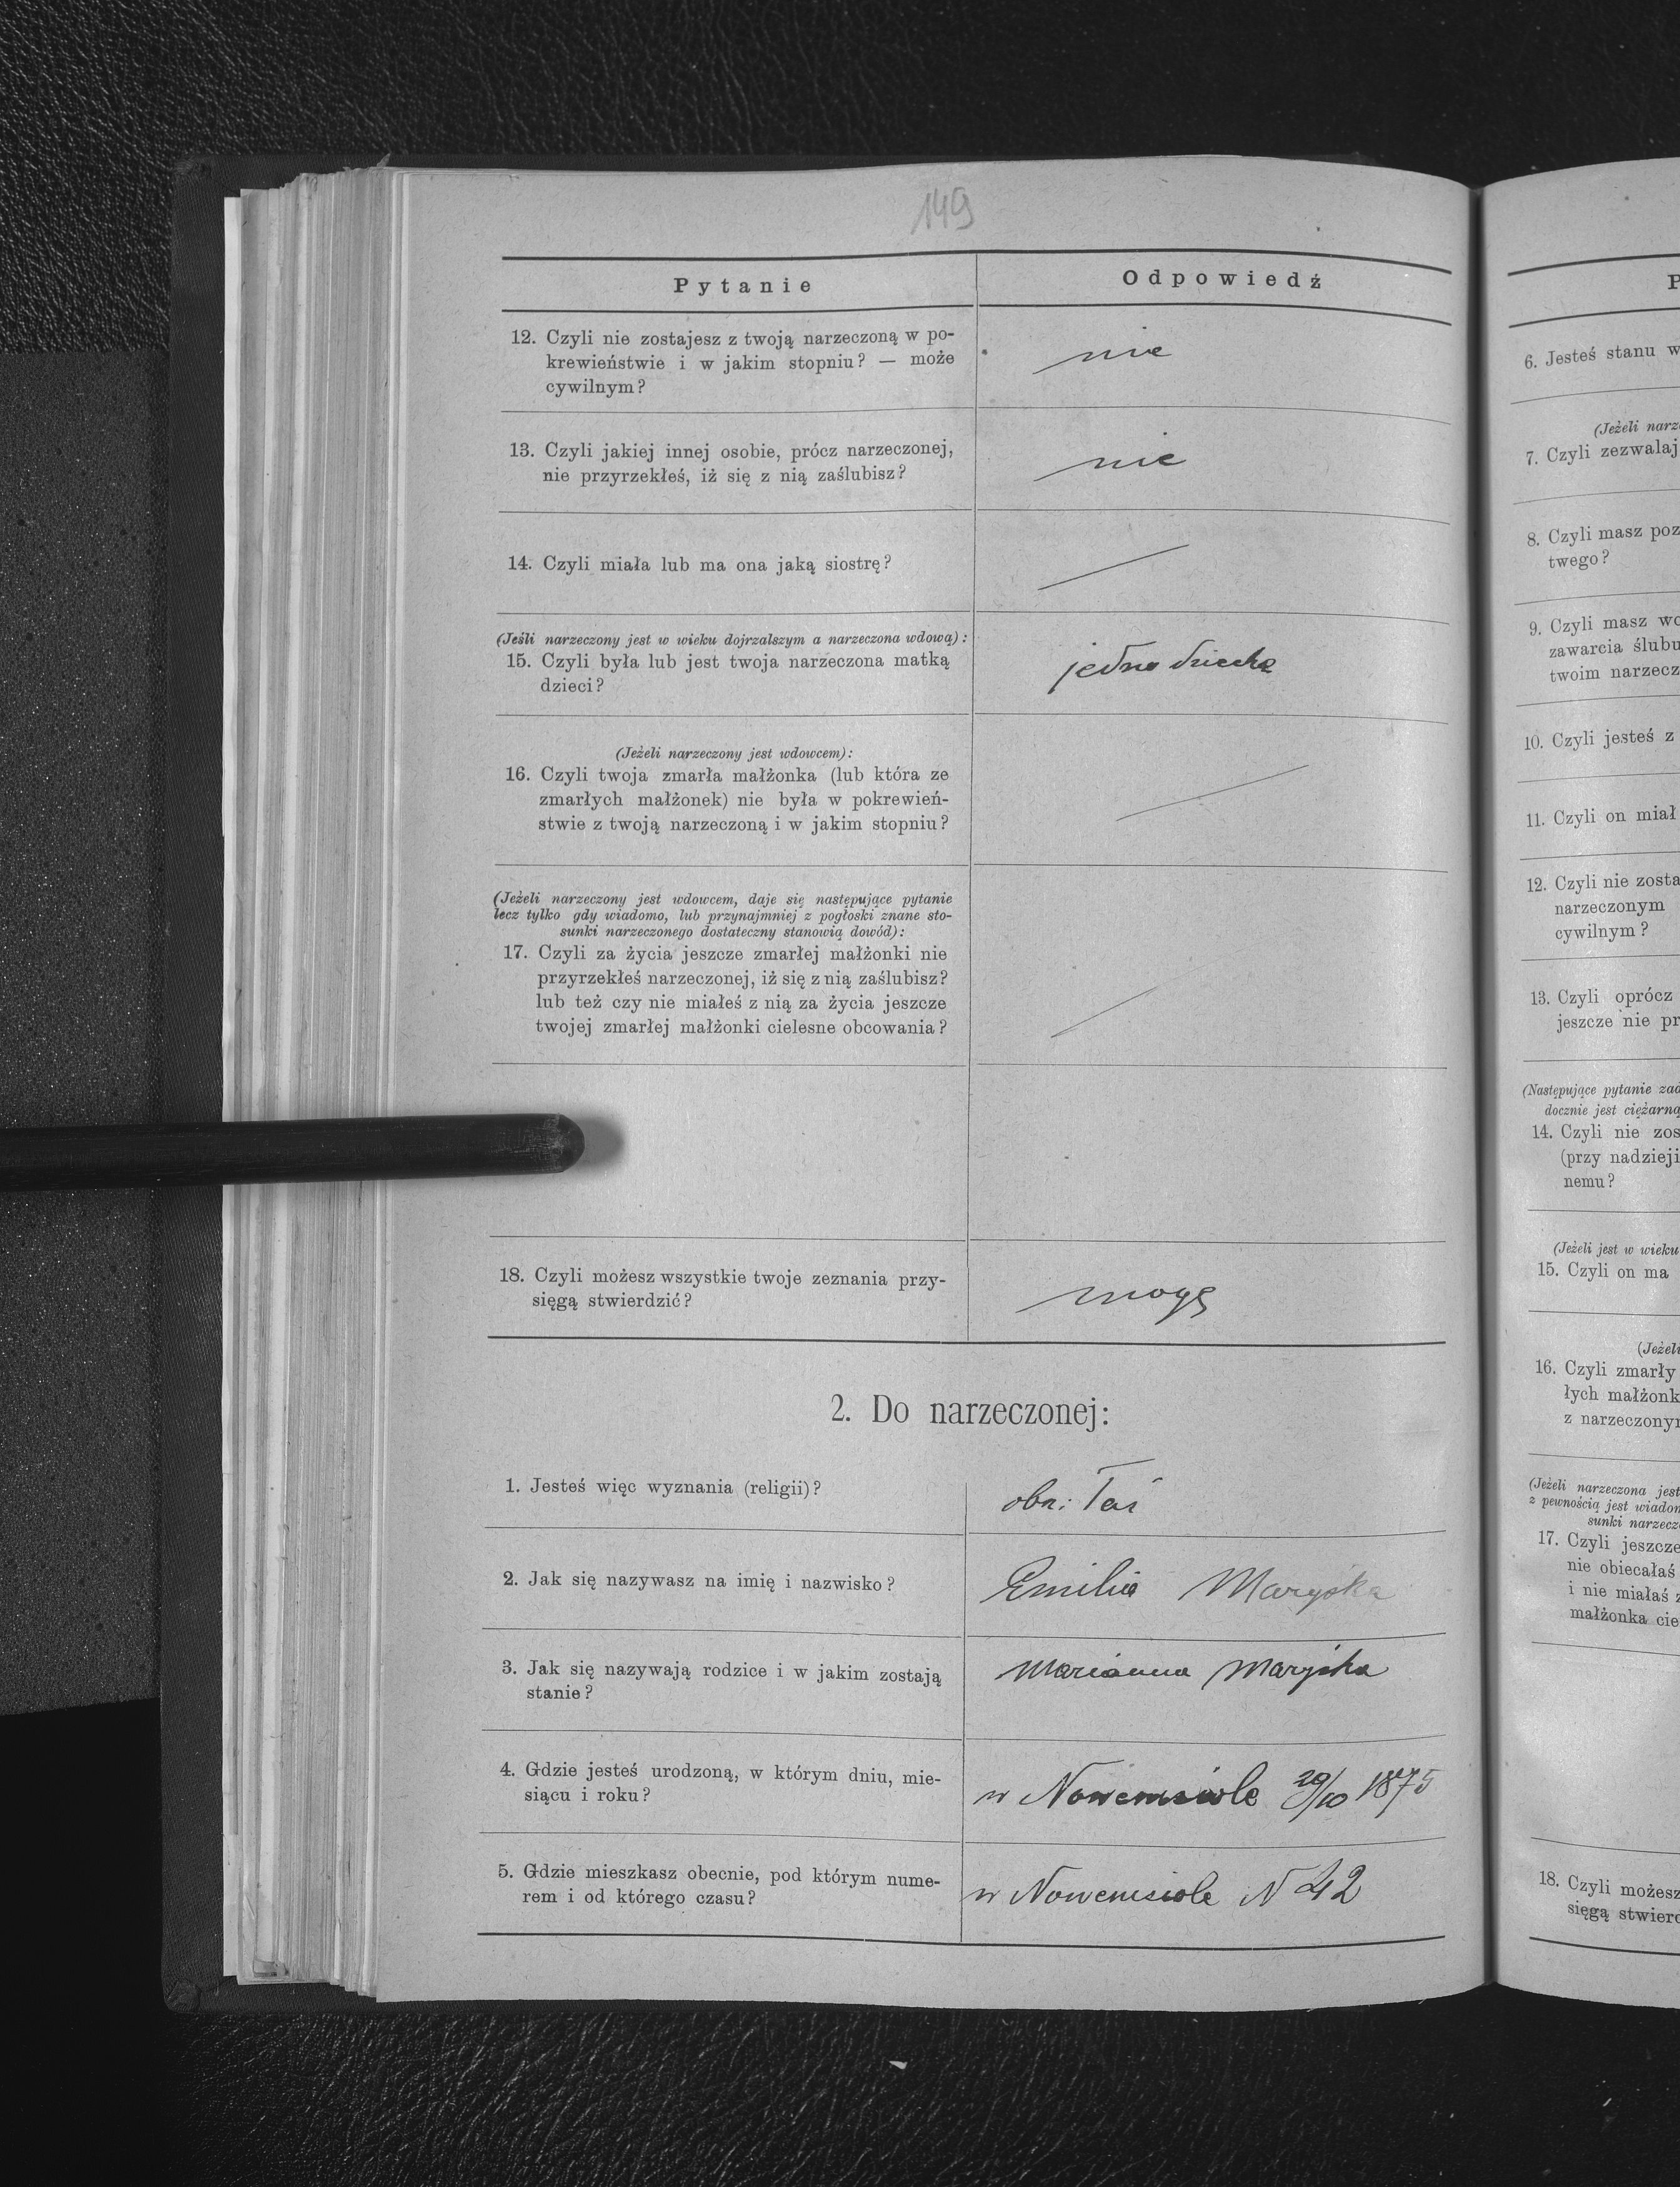 149
Pytanie
Odpowiedź
12. Czyli nie zostajesz z twoją narzeczoną w po-
krewieństwie i w jakim stopniu? — może
cywilnym?
nie
13. Czyli jakiej innej osobie, prócz narzeczonej,
nie przyrzekłeś, iż się z nią zaślubisz?
nie
14. Czyli miała lub ma ona jaką siostrę?
(Jeśli narzeczony jest w wieku dojrzalszym a narzeczona wdową):
15. Czyli była lub jest twoja narzeczona matką
dzieci?
jedno dziecko
(Jeżeli narzeczony jest wdowcem):
16. Czyli twoja zmarła małżonka (lub która ze
zmarłych małżonek) nie była w pokrewień-
stwie z twoją narzeczoną i w jakim stopniu?
(Jeżeli narzeczony jest wdowcem, daje się następujące pytanie
lecz tylko gdy wiadomo, lub przynajmniej z pogłoski znane sto-
sunki narzeczonego dostateczny stanowią dowód):
17. Czyli za życia jeszcze zmarłej małżonki nie
przyrzekłeś narzeczonej, iż się z nią zaślubisz?
lub też czy nie miałeś z nią za życia jeszcze
twojej zmarłej małżonki cielesne obcowania?
18. Czyli możesz wszystkie twoje zeznania przy-
sięgą stwierdzić?
mogę
2. Do narzeczonej:
1. Jesteś więc wyznania (religii)?
obrz. łać
2. Jak się nazywasz na imię i nazwisko?
Emilia Maryska
3. Jak się nazywają rodzice i w jakim zostają
stanie?
Marianna Maryska
4. Gdzie jesteś urodzoną, w którym dniu, mie-
siącu i roku?
w Nowemsiole 29/10 1875
5. Gdzie mieszkasz obecnie, pod którym nume-
rem i od którego czasu?
w Nowemsiole N 42
P
6. Jesteś stanu w
(Jeżeli narz
7. Czyli zezwalaj
8. Czyli masz poz
twego?
9. Czyli masz wo
zawarcia ślubu
twoim narzecz
10. Czyli jesteś z
11. Czyli on miał
12. Czyli nie zosta
narzeczonym
cywilnym?
13. Czyli oprócz
jeszcze nie pr
(Następujące pytanie zad
docznie jest ciężarna
14. Czyli nie zos
(przy nadzieji
nemu?
(Jeżeli jest w wieku
15. Czyli on ma
(Jeżeli
16. Czyli zmarły
łych małżonk
z narzeczony
(Jeżeli narzeczona jest
z pewnością jest wiadom
sunki narzecz
17. Czyli jeszcze
nie obiecałaś
i nie miałaś z
małżonka cie
18. Czyli możesz
sięgą stwierd